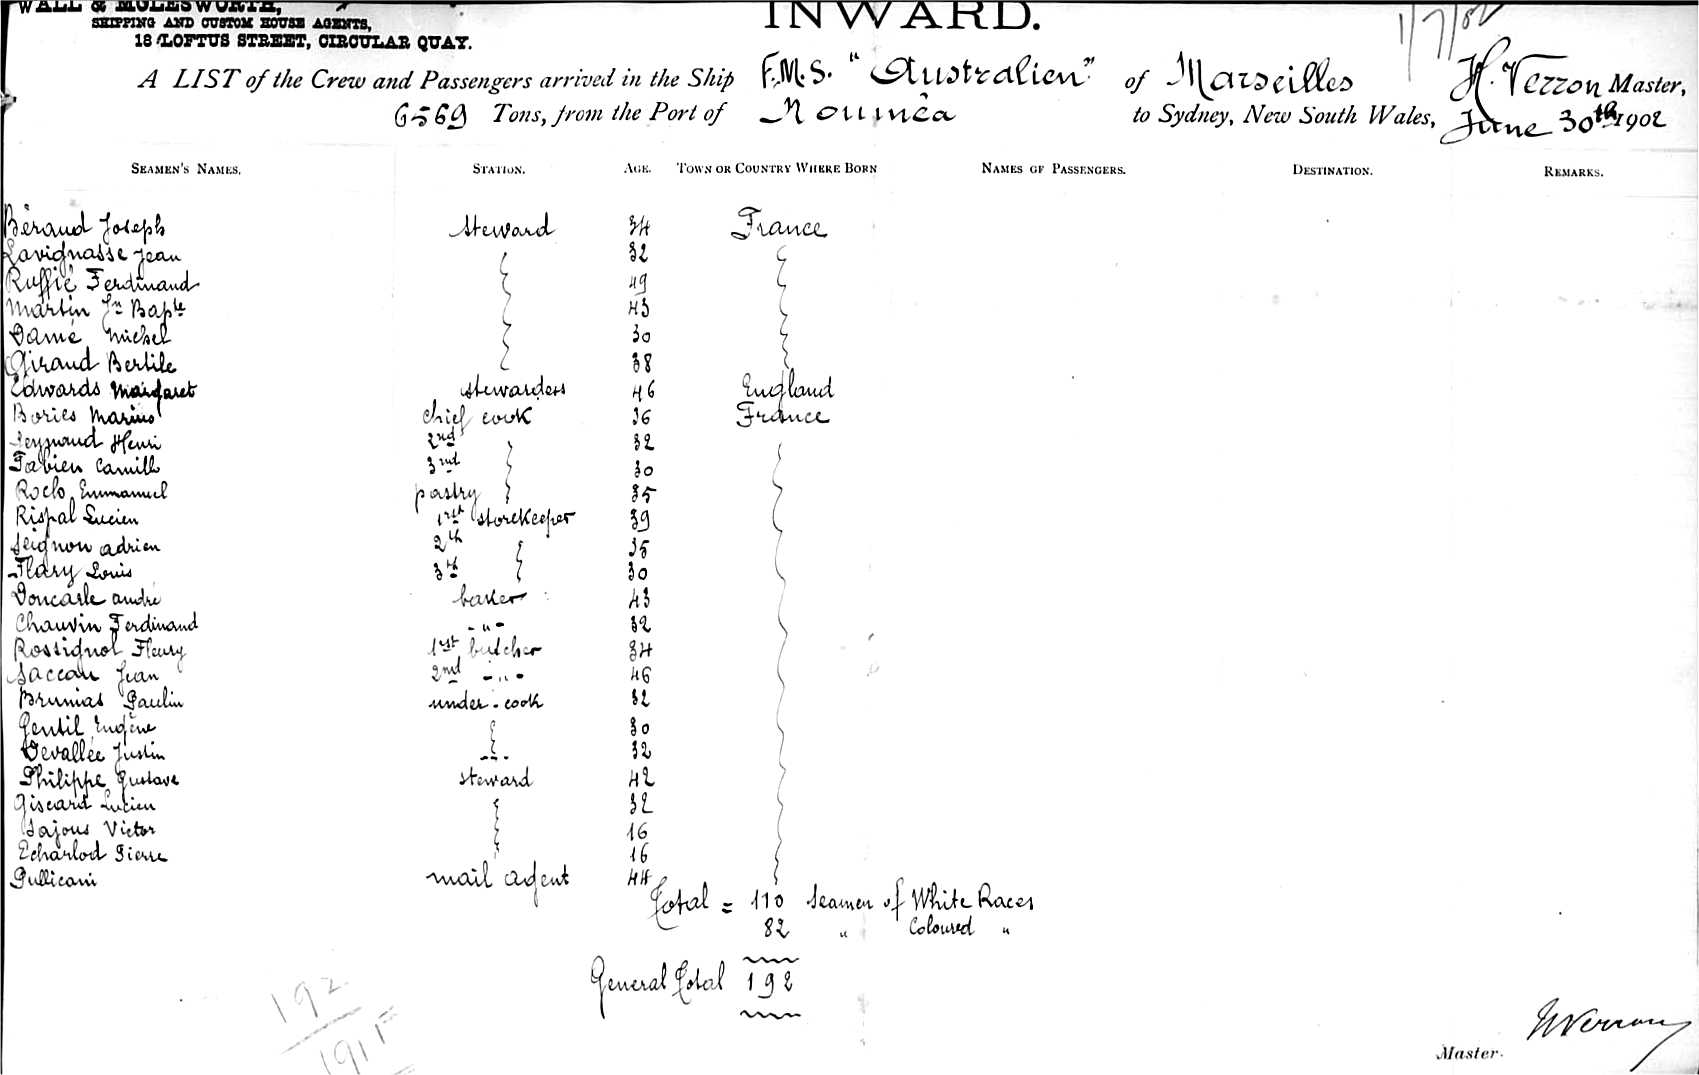 WALL & MOLESWORTH,
SHIPPING AND CUSTOM HOUSE AGENTS,
18 LOFTUS STREET, CIRCULAR QUAY.
INWARD.
1/7/02
A LIST of the Crew and Passengers arrived in the Ship F.M.S. "Australien" of Marseilles H. Verron Master,
6569 Tons, from the Port of Nouméa to Sydney, New South Wales, June 30th 1902
SEAMEN'S NAMES. STATION. AGE. TOWN OR COUNTRY WHERE BORN NAMES OF PASSENGERS. DESTINATION. REMARKS.
Béraud Joseph steward 34 France
Lavignasse Jean 32
Ruffié Ferdinand 49
Martin Jn Bapte 43
Damé Michel 30
Giraud Bertile 38
Edwards Margaret stewardess 46 England
Bories Marius chief cook 36 France
Henri 2nd 32
Fabien Camille 3rd 30
Roclo Emmanuel pastry 35
Rispal Lucien 1rst storekeeper 39
Seignon Adrien 2th 35
Flary Louis 3th 30
Doncarle André baker 43
Chauvin Ferdinand -"- 32
Rossignol Fleury 1rst butcher 34
Saccau Jean 2nd -"- 46
Brunias Paulin under-cook 32
Gentil Eugène 30
Devallée Justin 32
Philippe Gustave steward 42
Giscard Lucien 32
Sajous Victor 16
Echarlod Pierre 16
Pullicani mail agent 44
Total = 110 Seamen of White Races
82 " Coloured "
General Total 192
192
1911
HVerron
Master.